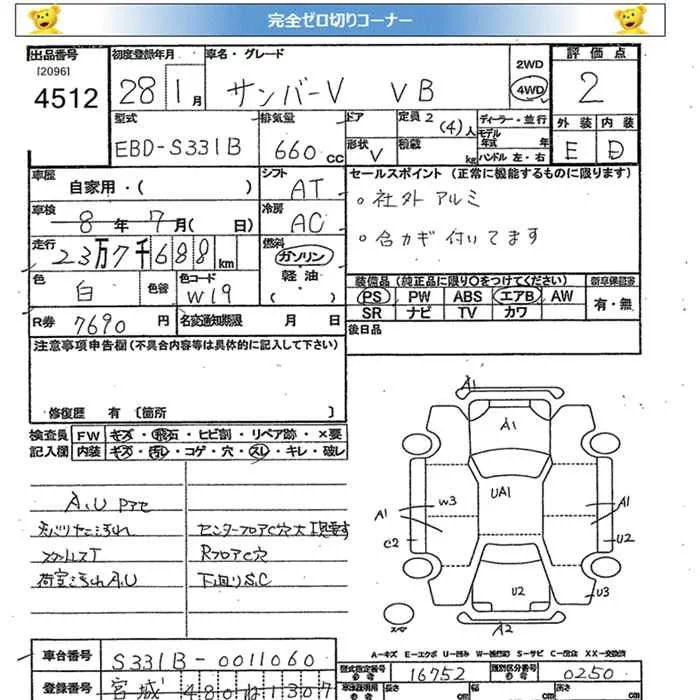 完全ゼロ切りコーナー
出品番号
[2096]
4512
初度登録年月
28 1 月
車名・グレード
サンバーV VB
2WD
4WD
評価点
2
型式
EBD-S331B
排気量
660 cc
ドア
定員 2 (4)人
形状 V
積載 kg
ディーラー・並行
モデル年式 年
ハンドル 左・右
外装 内装
E D
車歴
自家用・( )
シフト
AT
セールスポイント (正常に機能するものに限ります)
。社外 アルミ
。合カギ 付いてます
車検
8 年 7 月( 日)
冷房
AC
走行
23万7千688 km
燃料
ガソリン
軽油
( )
色
白
色替
色コード
W19
装備品 (純正品に限り○をつけてください)
PS PW ABS エアB AW
SR ナビ TV カワ
新車保証書
有・無
R券 7690 円
名変通知期限 月 日
後日品
注意事項申告欄(不具合内容等は具体的に記入して下さい)
修復歴 有 〔箇所 〕
検査員記入欄
FW キズ・飛石・ヒビ割・リペア跡・×要
内装 キズ・汚れ・コゲ・穴・スレ・キレ・破レ
A.U
センターフロアC穴大
RフロアC穴
下回りS.C
荷室 A.U
A1
A1
UA1
W3
A1
A1
C2
U2
U2
U3
A2
スペア
A-キズ E-エクボ U-凹み W-補修跡 S-サビ C-腐食 XX-交換済
車台番号
S331B-0011060
登録番号
宮城 480
1307
型式指定番号
16752
類別区分番号
0250
長さ cm
cm
cm